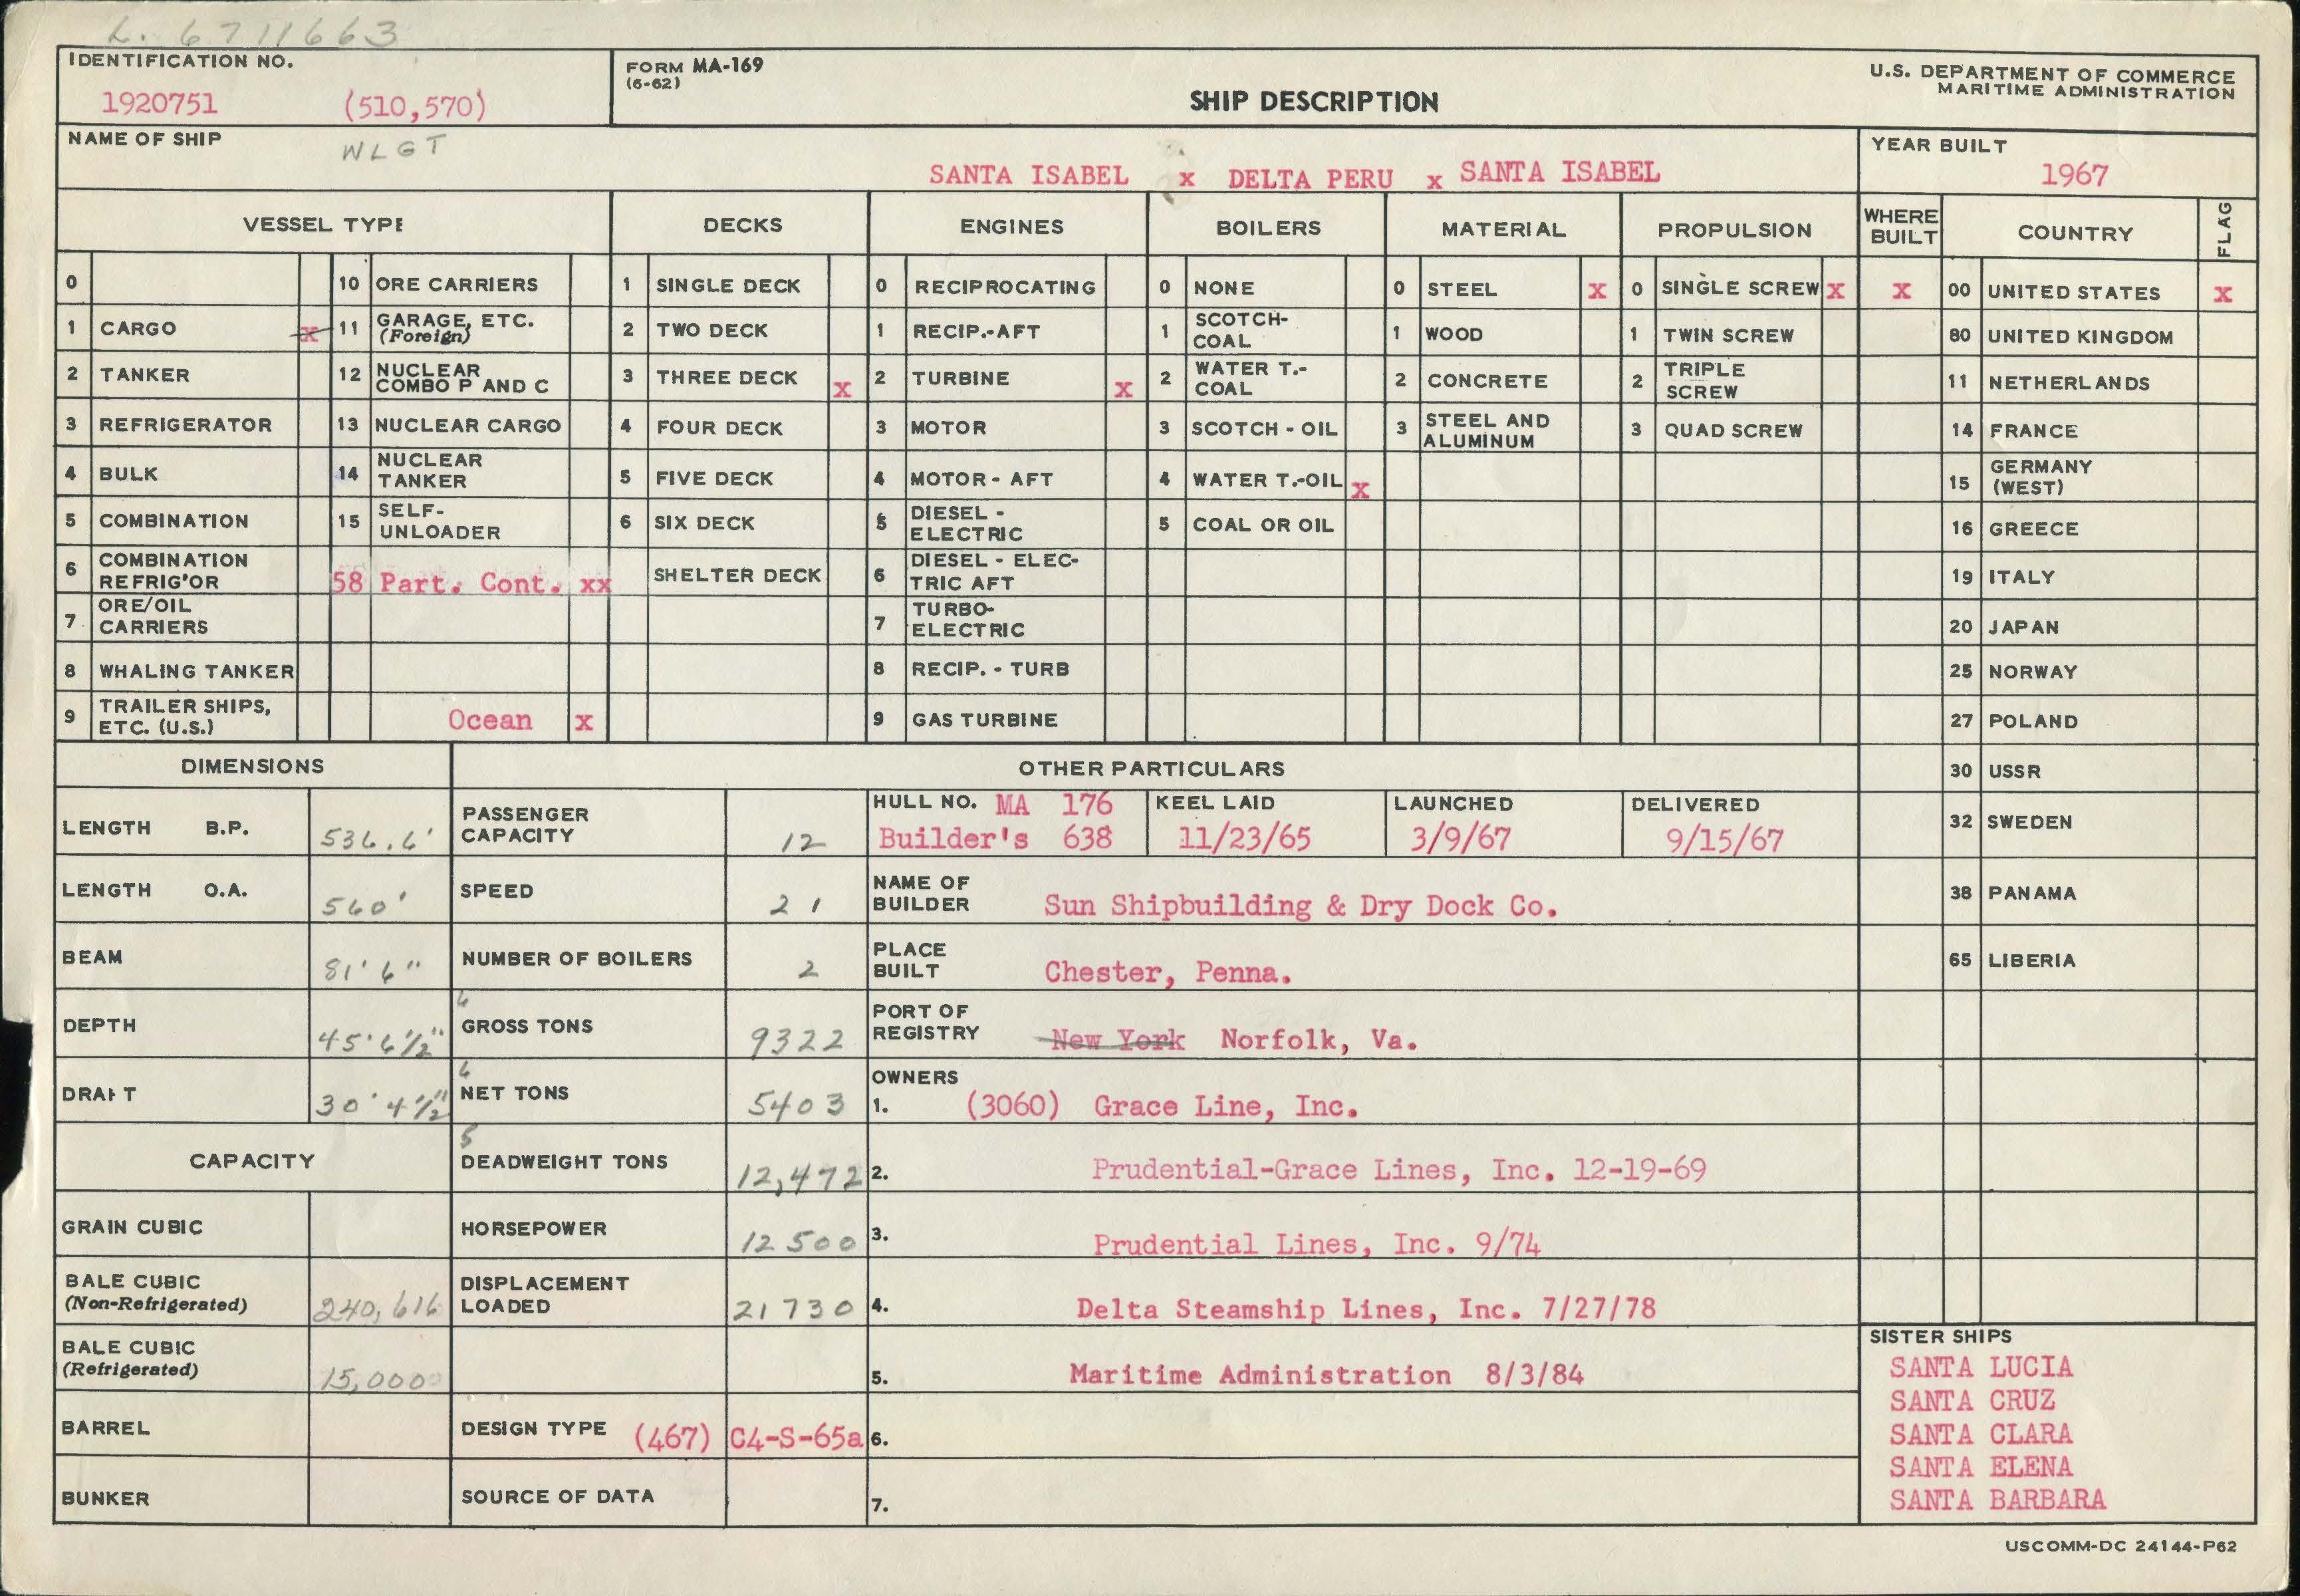 L. 6711663
IDENTIFICATION NO.
1920751 (510,570)
FORM MA-169
(6-62)
SHIP DESCRIPTION
U.S. DEPARTMENT OF COMMERCE
MARITIME ADMINISTRATION
NAME OF SHIP
WLGT
SANTA ISABEL x DELTA PERU x SANTA ISABEL
YEAR BUILT
1967
VESSEL TYPE
0
1 CARGO x
2 TANKER
3 REFRIGERATOR
4 BULK
5 COMBINATION
6 COMBINATION REFRIG'OR
7 ORE/OIL CARRIERS
8 WHALING TANKER
9 TRAILER SHIPS, ETC. (U.S.)
10 ORE CARRIERS
11 GARAGE, ETC. (Foreign)
12 NUCLEAR COMBO P AND C
13 NUCLEAR CARGO
14 NUCLEAR TANKER
15 SELF-UNLOADER
58 Part. Cont. xx
Ocean x
DECKS
1 SINGLE DECK
2 TWO DECK
3 THREE DECK x
4 FOUR DECK
5 FIVE DECK
6 SIX DECK
SHELTER DECK
ENGINES
0 RECIPROCATING
1 RECIP.-AFT
2 TURBINE x
3 MOTOR
4 MOTOR - AFT
5 DIESEL - ELECTRIC
6 DIESEL - ELEC-TRIC AFT
7 TURBO-ELECTRIC
8 RECIP. - TURB
9 GAS TURBINE
BOILERS
0 NONE
1 SCOTCH-COAL
2 WATER T.-COAL
3 SCOTCH - OIL
4 WATER T.-OIL x
5 COAL OR OIL
MATERIAL
0 STEEL x
1 WOOD
2 CONCRETE
3 STEEL AND ALUMINUM
PROPULSION
0 SINGLE SCREW x
1 TWIN SCREW
2 TRIPLE SCREW
3 QUAD SCREW
WHERE BUILT COUNTRY FLAG
x 00 UNITED STATES x
80 UNITED KINGDOM
11 NETHERLANDS
14 FRANCE
15 GERMANY (WEST)
16 GREECE
19 ITALY
20 JAPAN
25 NORWAY
27 POLAND
30 USSR
32 SWEDEN
38 PANAMA
65 LIBERIA
DIMENSIONS
LENGTH B.P. 536.6'
LENGTH O.A. 560'
BEAM 81'6"
DEPTH 45'6½"
DRAFT 30'4½"
CAPACITY
GRAIN CUBIC
BALE CUBIC (Non-Refrigerated) 240,616
BALE CUBIC (Refrigerated) 15,000
BARREL
BUNKER
OTHER PARTICULARS
PASSENGER CAPACITY 12
SPEED 21
NUMBER OF BOILERS 2
6
GROSS TONS 9322
6
NET TONS 5403
5
DEADWEIGHT TONS 12,472
HORSEPOWER 12500
DISPLACEMENT LOADED 21730
DESIGN TYPE (467) C4-S-65a
SOURCE OF DATA
HULL NO. MA 176
Builder's 638
KEEL LAID
11/23/65
LAUNCHED
3/9/67
DELIVERED
9/15/67
NAME OF BUILDER Sun Shipbuilding & Dry Dock Co.
PLACE BUILT Chester, Penna.
PORT OF REGISTRY New York Norfolk, Va.
OWNERS
1. (3060) Grace Line, Inc.
2. Prudential-Grace Lines, Inc. 12-19-69
3. Prudential Lines, Inc. 9/74
4. Delta Steamship Lines, Inc. 7/27/78
5. Maritime Administration 8/3/84
6.
7.
SISTER SHIPS
SANTA LUCIA
SANTA CRUZ
SANTA CLARA
SANTA ELENA
SANTA BARBARA
USCOMM-DC 24144-P62